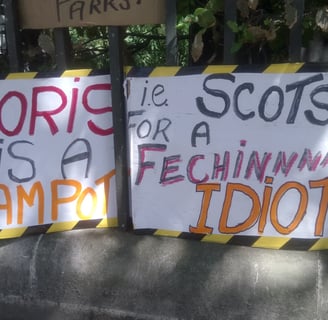 PARKS!
ORIS
IS A
AMPOT
i.e. SCOTS
FOR A
FECHINNNN
IDIOT